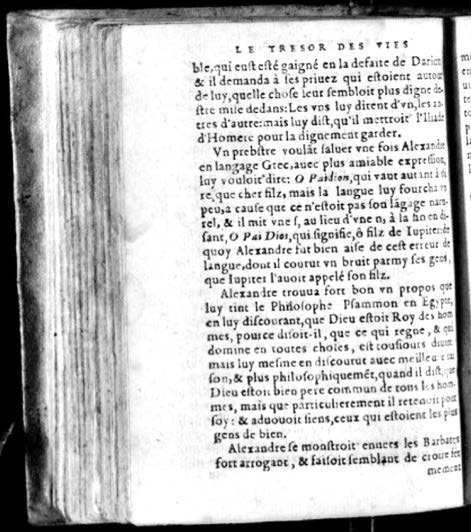 LE TRESOR DES VIES
ble, qui eust esté gaigné en la defaite de Darius
& il demanda à ses priuez qui estoient autour
de luy, quelle chose leur sembloit plus digne de
stre mise dedans: Les vns luy dirent d'vn, les au
tres d'autre: mais luy dist, qu'il mettroit l'Iliade
d'Homere pour la dignement garder.
Vn prebstre voulāt saluer vne fois Alexandre
en langage Grec, auec plus amiable expression,
luy vouloit dire: O Paidion, qui vaut autant à di
re, que cher filz, mais la langue luy fourcha vn
peu, a cause que ce n'estoit pas son lāgage natu
rel, & il mit vne s, au lieu d'vne n, à la fin en di-
sant, O Pai Dios, qui signifie, ô filz de Iupiter: de
quoy Alexandre fut bien aise de cest erreur de
langue, dont il courut vn bruit parmy ses gens,
que Iupiter l'auoit appelé son filz.
Alexandre trouua fort bon vn propos que
luy tint le Philosophe Psammon en Egypte,
en luy discourant, que Dieu estoit Roy des hom
mes, pource disoit-il, que ce qui regne, & qui
domine en toutes choses, est tousiours diuin:
mais luy mesme en discourut auec meilleure rai
son, & plus philosophiquemēt, quand il dist, que
Dieu estoit bien pere commun de tous les hom-
mes, mais que particulierement il retenoit pour
soy: & aduouoit siens, ceux qui estoient les plus
gens de bien.
Alexandre se monstroit enuers les Barbares
fort arrogant, & faisoit semblant de croire fer
mement